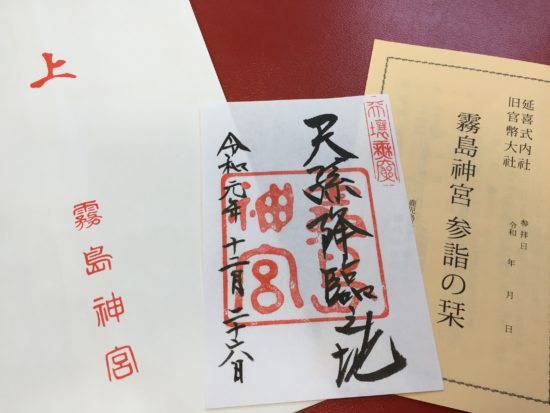 上
霧島神宮
天壌無窮
天孫降臨之地
霧島神宮
令和元年十二月二十六日
延喜式内社
旧官幣大社
霧島神宮 参詣の栞
参拝日
令和 年 月 日
鹿児島